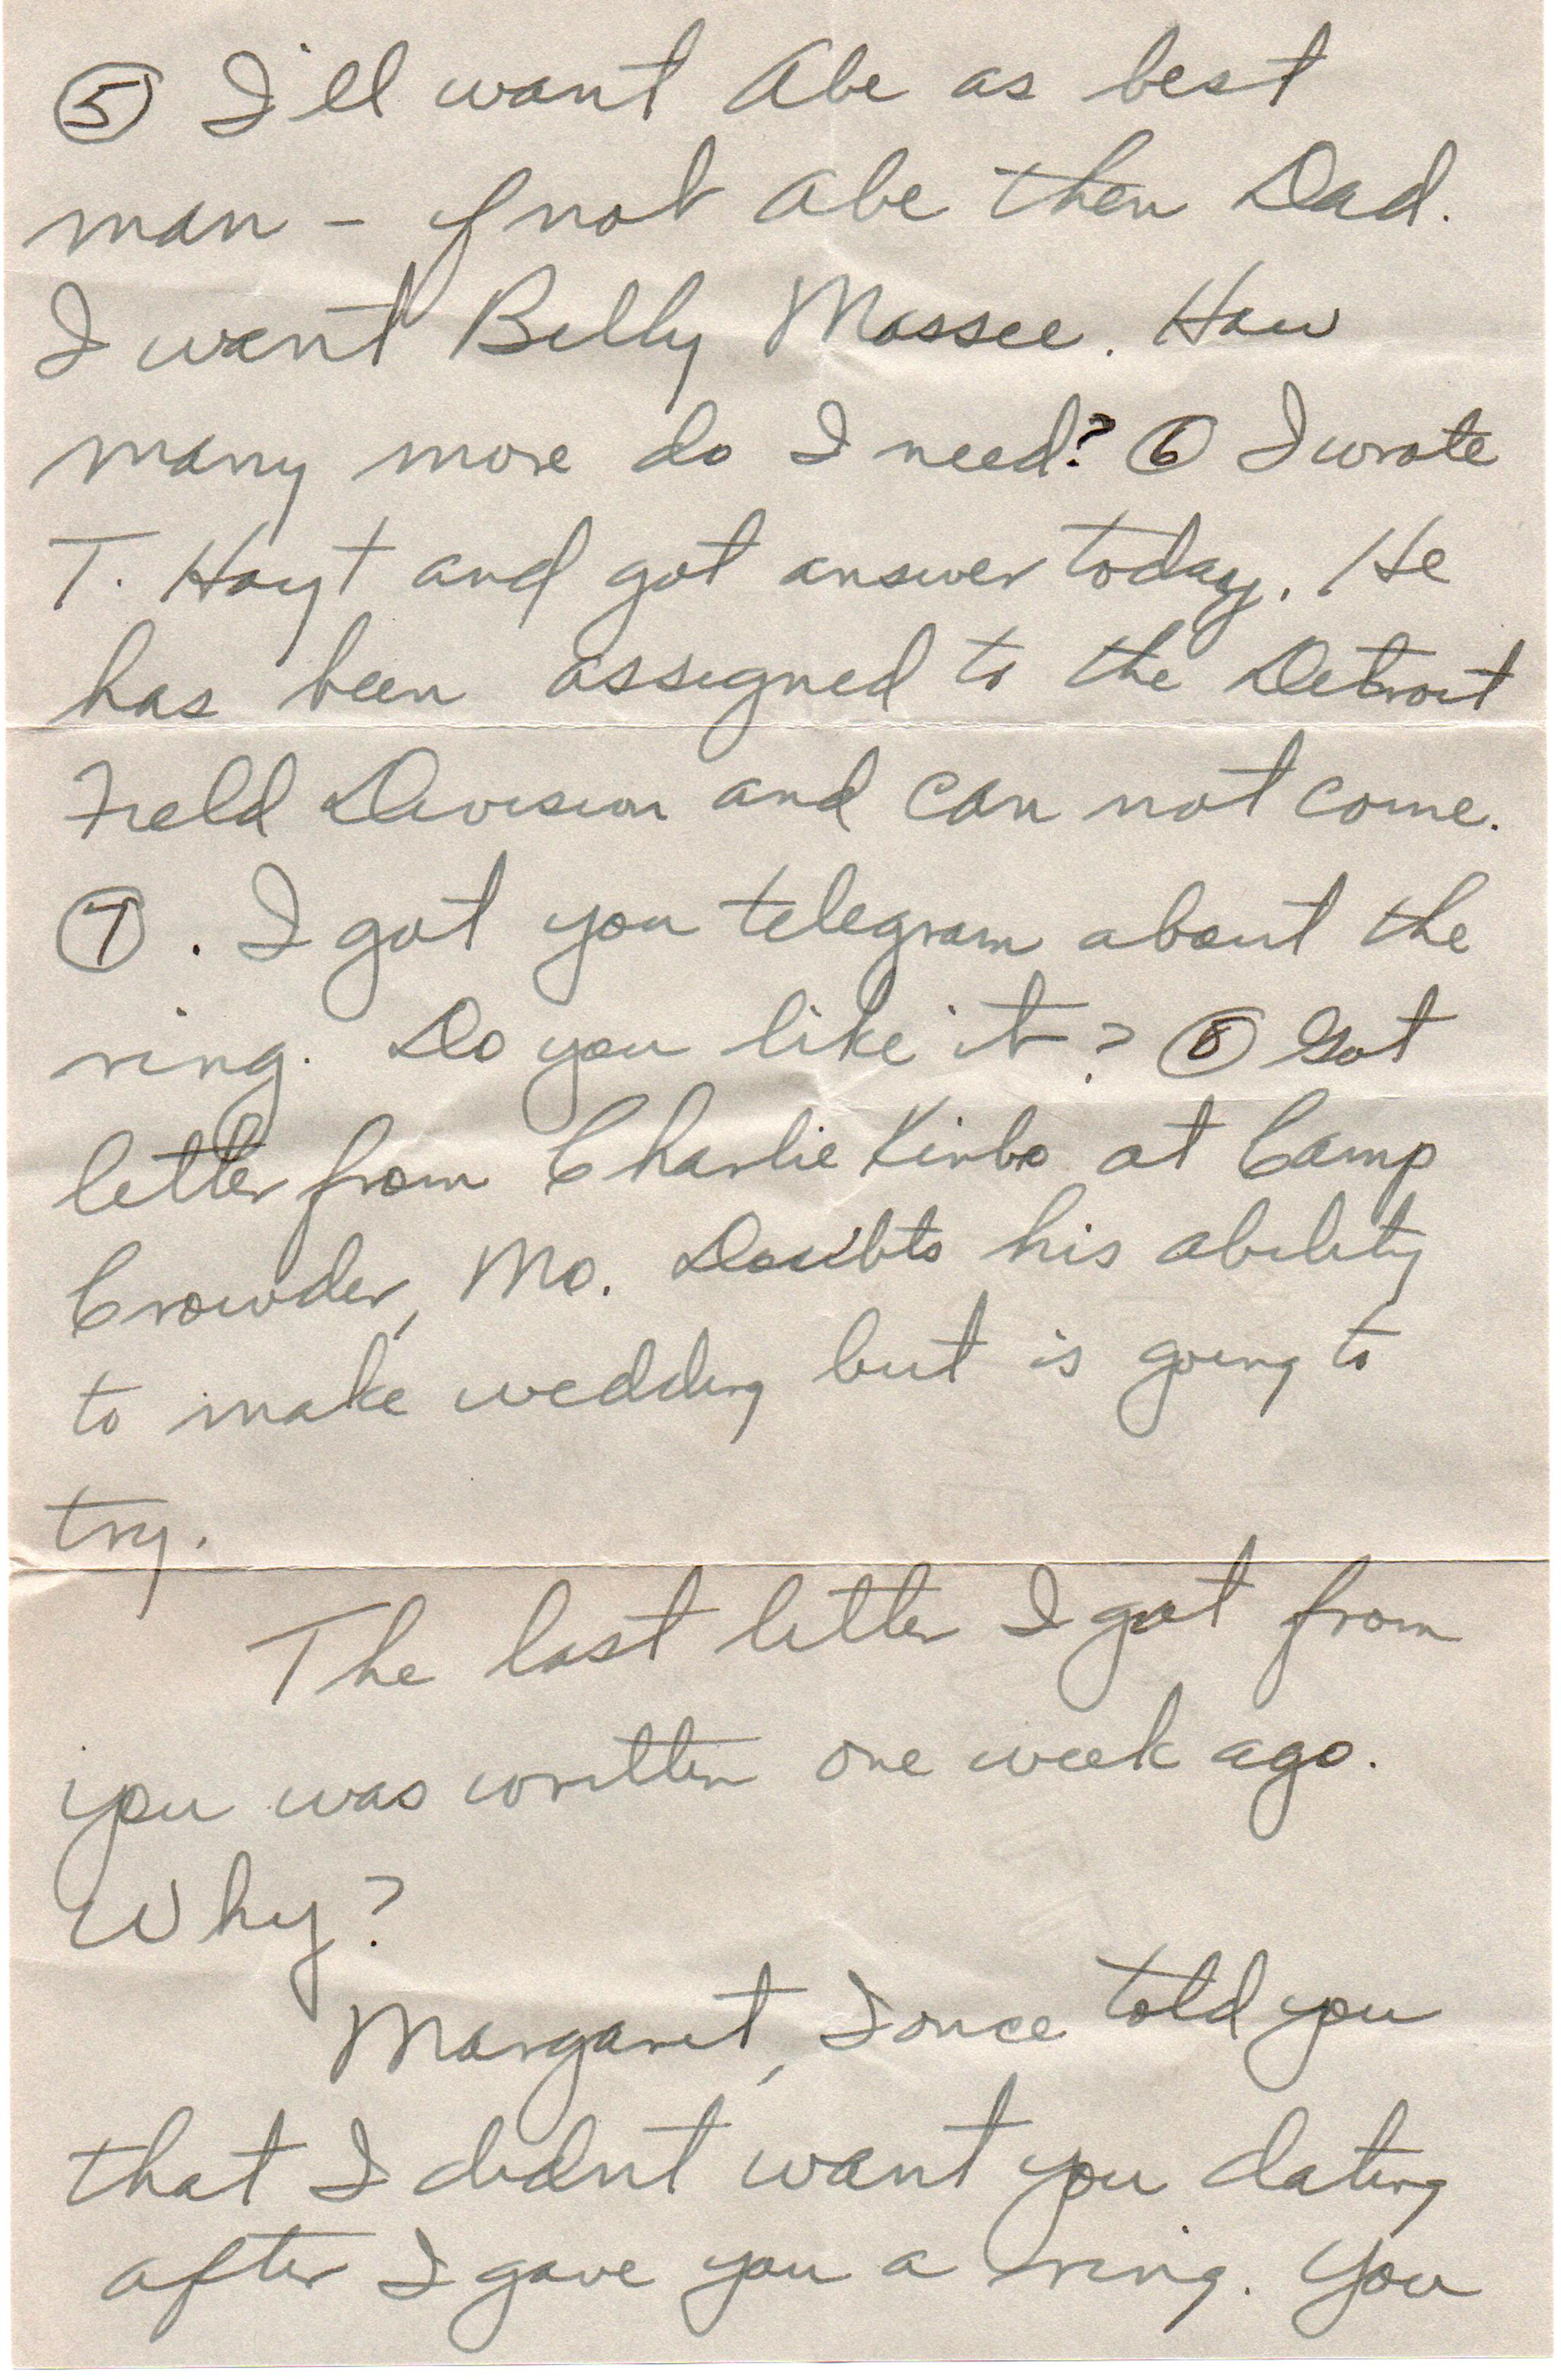 ⑤ I'll want Abe as best
man - if not Abe then Dad.
I want Billy Massee. How
many more do I need? ⑥ I wrote
T. Hoyt and got answer today. He
has been assigned to the Detroit
Field Division and can not come.
⑦. I got you telegram about the
ring. Do you like it? ⑧ Got
letter from Charlie Kirbo at Camp
Crowder, Mo. Doubts his ability
to make wedding but is going to
try.
The last letter I got from
you was written one week ago.
Why?
Margaret, I once told you
that I didnt want you dating
after I gave you a ring. You